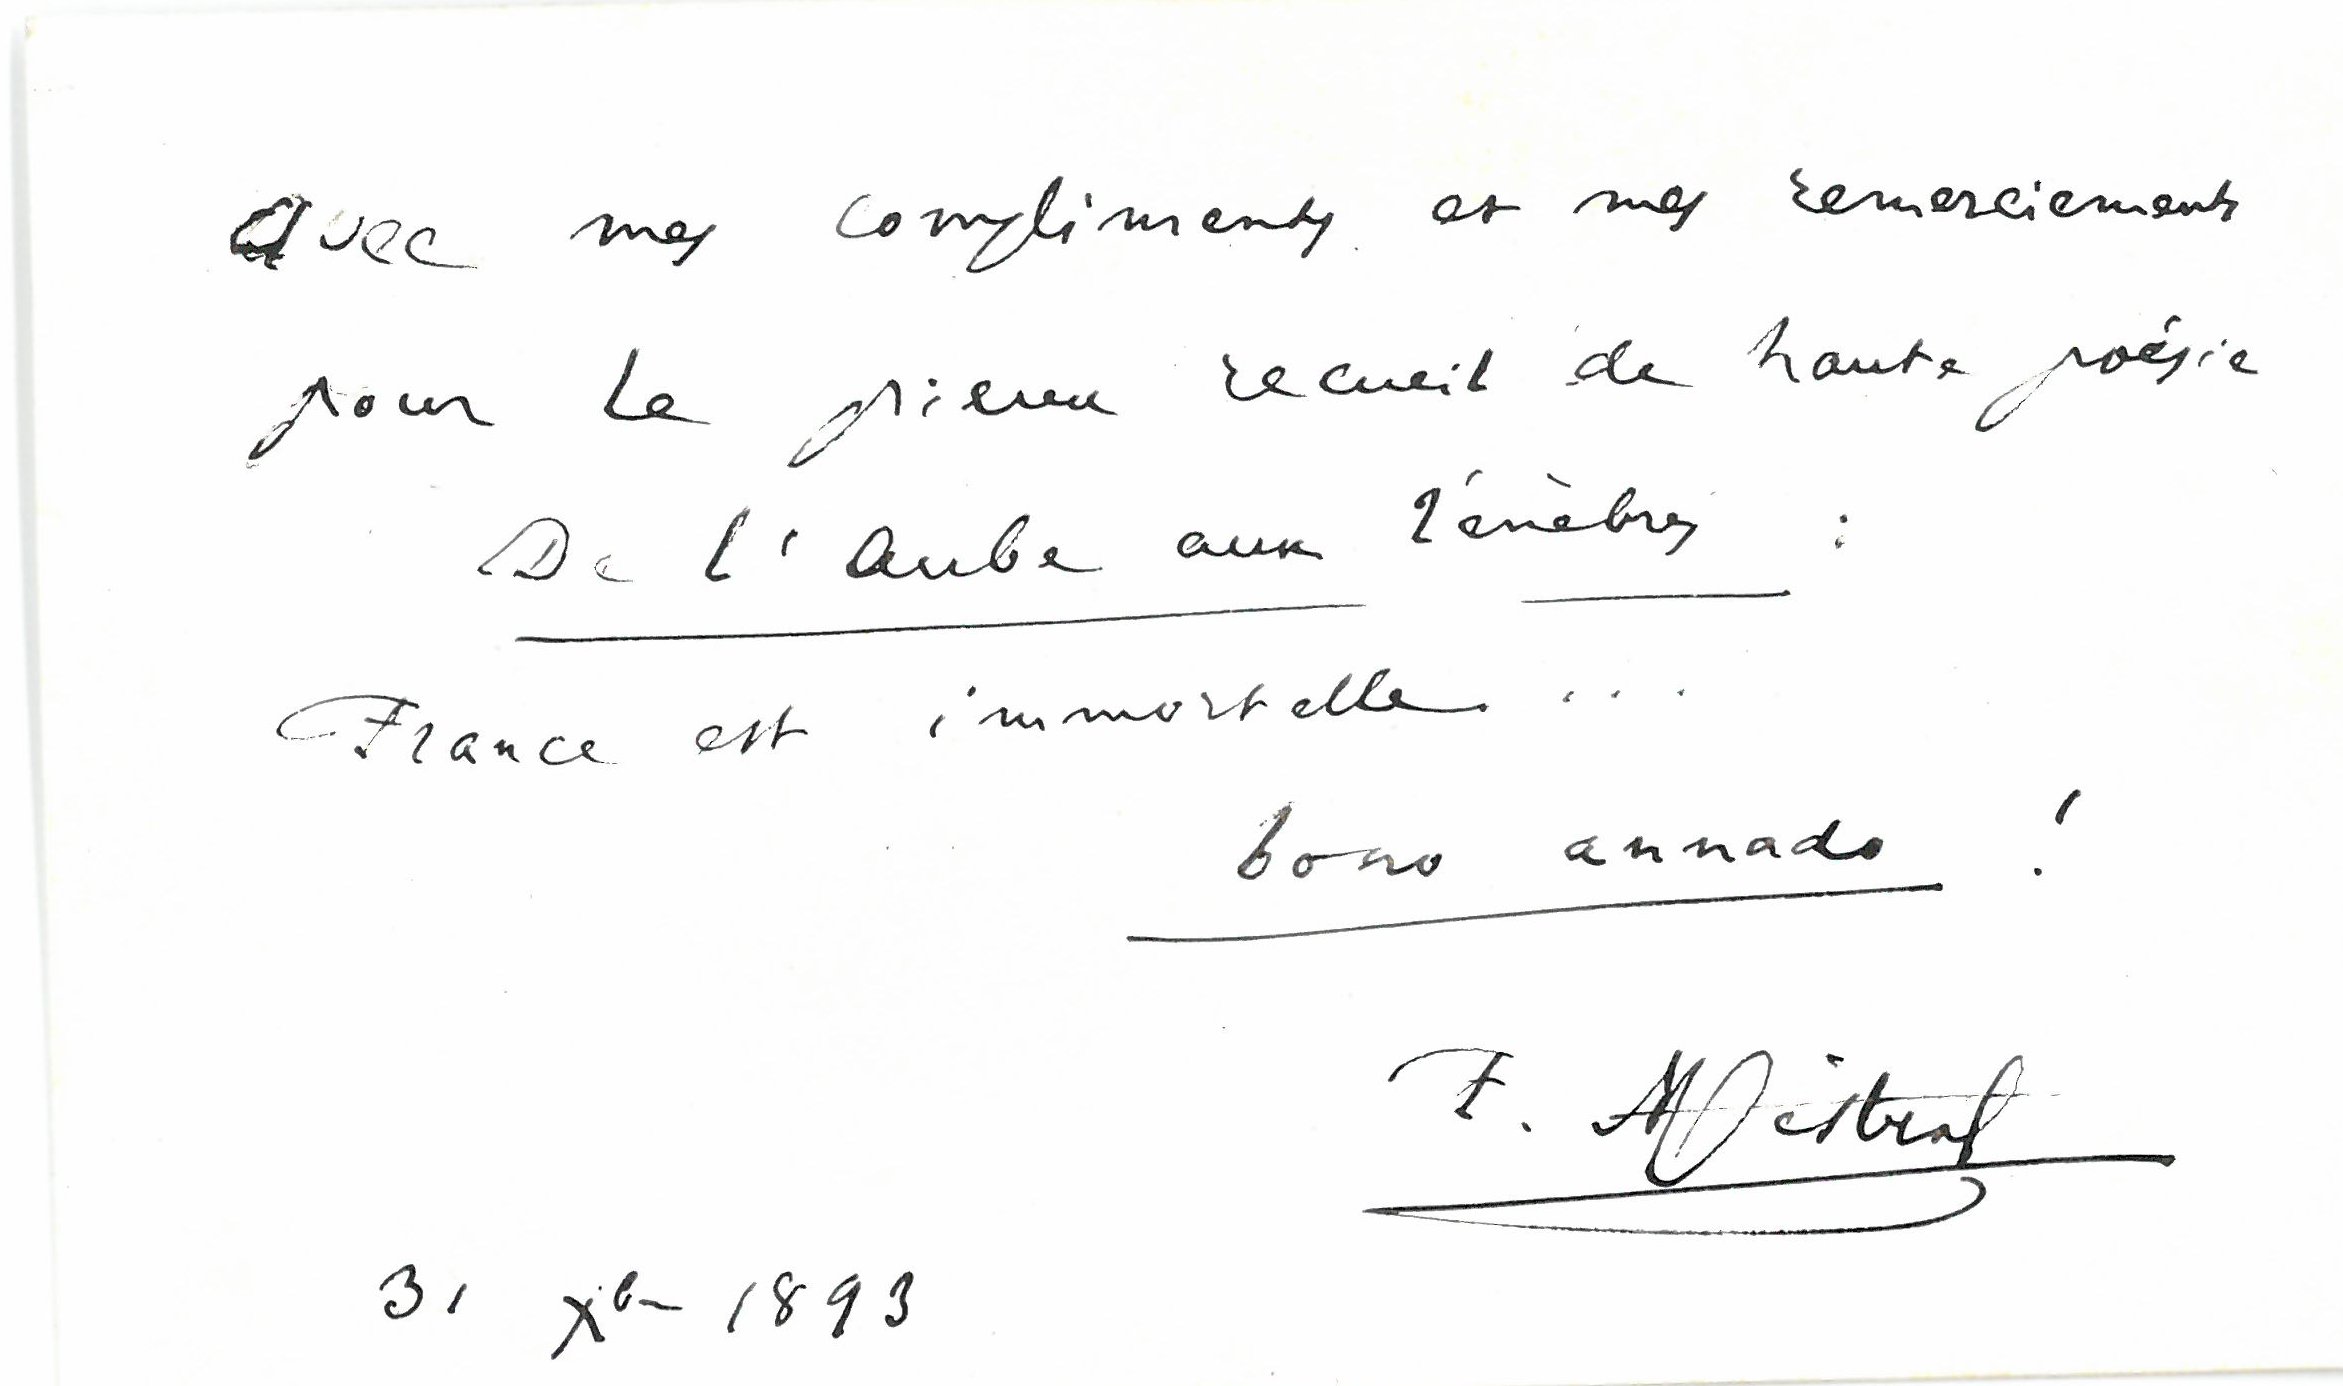 avec mes compliments et mes remerciements
pour le pieux recueil de haute poésie
De l'Aube aux Ténèbres :
France est immortelle ...
bono annado !
F. Mistral
31 Xbre 1893